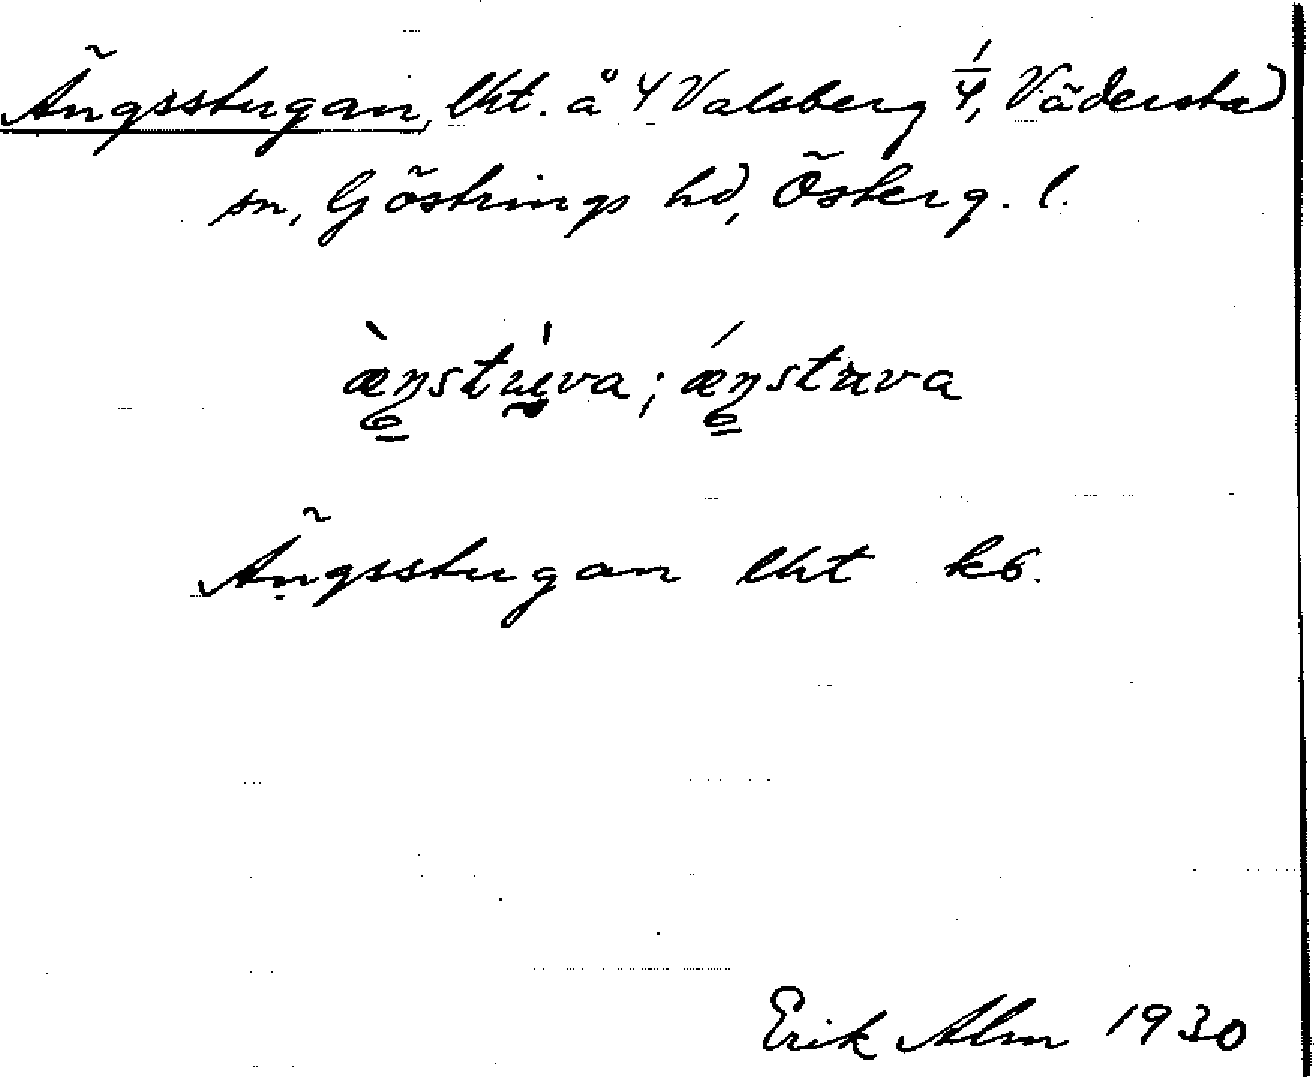 Ängsstugan, lht. å 4 Valsberg 1/4, Väderstad
sn, Göstrings hd, Österg. l.
æ̀nstùva; ǽnstuva
Ängsstugan lht kb.
Erik Alm 1930